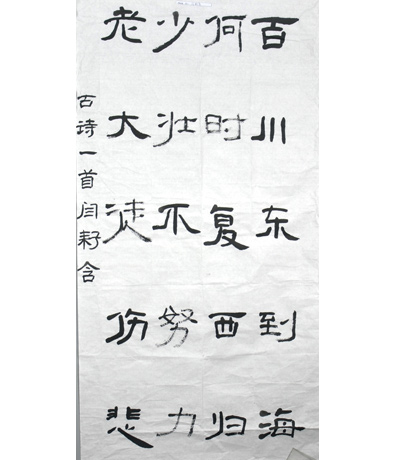 百川东到海
何时复西归
少壮不努力
老大徒伤悲
古诗一首闫籽含